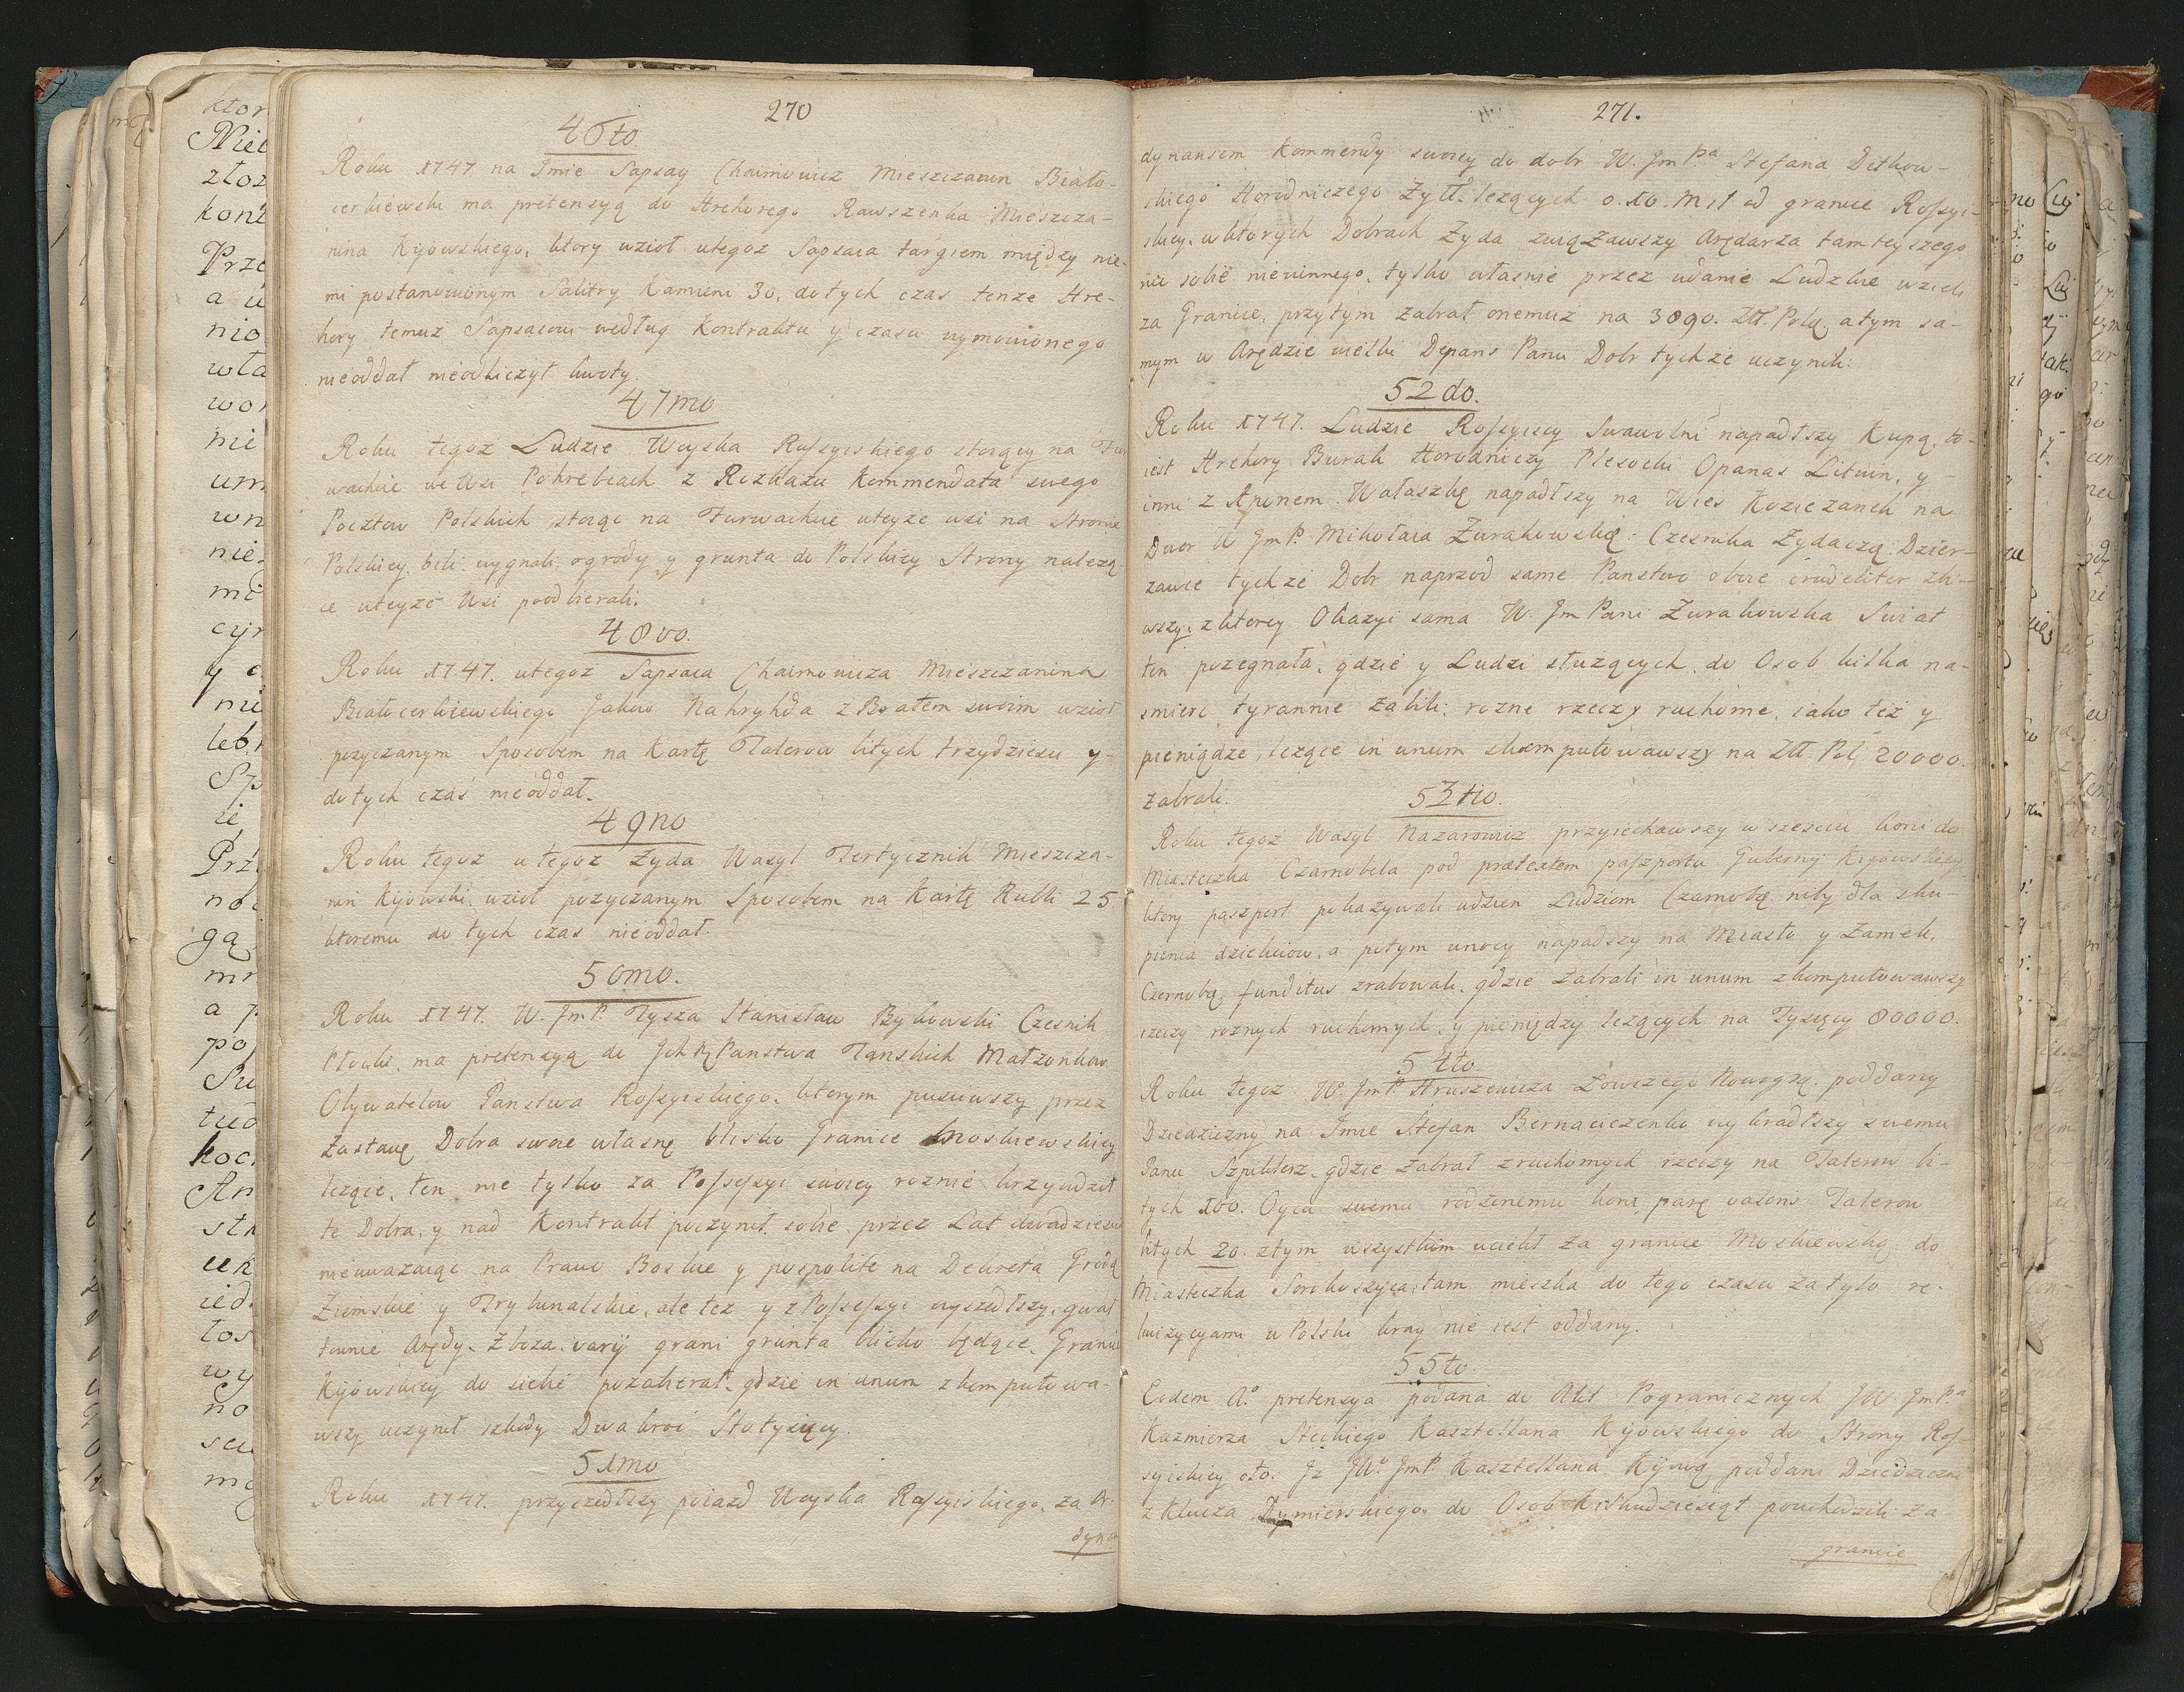 270
46to.
Roku 1747 na Imie Sapsay Chaimowicz Mieszczanin Biało-
cerkiewski ma pretensyą do Hrehorego Rawszenka Mieszcza-
nina Kijowskiego, ktory wzioł utegoz Sapsaia targiem między nie-
mi postanowionym Salitry Kamieni 30, dotych czas tenze Hre-
hory temuz Sapsaiowi według Kontraktu y czasu wymowionego
nieoddał nieodliczył kwoty.
47mo
Roku tegoz Ludzie Woyska Rossyiskiego stoiący na
wachcie we Wsi Pohrebiach z Rozkazu Kommendata swego
Pocztow Polskich stoiąc na Furwachcie uteyze wsi na Stronie
Polskiey, bili, wygnali, ogrody y grunta do Polskiey Strony nalezą-
ce uteyze Wsi poodbierali.
48vo.
Roku 1747. utegoz Sapsaia Chaimowicza Mieszczanina
Białocerkiewskiego Jakow Nahryhda z Bratem swoim wzioł
pozyczanym Sposobem na Kartę Talerow bitych trzydziesci y-
dotych czas nieoddał.
49no
Roku tegoz utegoz Zyda Wasyl Tertycznik Mieszcza-
nin Kijowski, wzioł pozyczanym Sposobem na Kartę Rubli 25
ktoremu do tych czas nieoddał.
50mo.
Roku 1747. W. JmP. Tysza Stanisław Bykowski Czesnik
Płocki, ma pretensyą do Państwa Tanskich Małzonkow
Obywatelow Panstwa Rossyiskiego, ktorym pusciwszy przez
Zastawę Dobra swoie własne blisko Granice Moskiewskiey
lezące, ten nie tylko za Possessyi swoiey roznie krzywdził
te Dobra, y nad Kontrakt poczynił sobie przez Lat dwadziescia
nieuwazaiąc na Prawo Boskie y pospolite na Dekreta Grodz
Ziemskie y Trybunalskie, ale tez y z Possessyi wyszedłszy, gwał
townie Arędy, Zboza, varij grani grunta blisko będące Granic
Kijowskiey do siebie pozabierał, gdzie in unum zkomputowa-
wszy uczynił szkody Dwakroć Stotysięcy.
51mo
Roku 1747. przyszedłszy poiazd Woyska Rossyiskiego, za Or-
dynan
271.
dynansem Kommendy swoiey do dobr W. JmPa Stefana Ditkow-
skiego Horodniczego Zytt. lezących o 10. Mil od granice Rossyi-
skiey, wktorych Dobrach Zyda związawszy Arędarza tamteyszego
nic sobie niewinnego, tylko własnie przez udanie Ludzkie wzieli
za Granice, przytym zabrał onemuz na 3090. Złt. Polą. atym sa-
mym w Arędzie wielki Depans Panu Dobr tychze uczynili:
52do.
Roku 1747. Ludzie Rossyiscy Swawolni napadłszy Kupą, to-
iest Hrehory Burak Horodniczy Plesocki Opanas Litwin, y-
inni z Apinem Wałaszkę napadłszy na Wies Koziczanek na
Dwor W JmP. Mikołaia Zurakowskię Czesnika Zydaczą Dzier-
zawce tychze Dobr naprzod same Panstwo oboie crudeliter zbi-
wszy, zktorey Okazyi sama W. Jm Pani Zurakowska Swiat
ten pozegnała, gdzie y Ludzi sluzących do Osob kilka na-
smierc tyrannie zabili, rozne rzeczy ruchome, iako tez y
pieniądze, lezące in unum skomputowawszy na Złł Pol 20000.
zabrali.
53tio.
Roku tegoz Wasyl Nazarowicz przyiechawszy w szesciu koni do
Miasteczka Czarnobela pod prætextem paszportu Gubernij Kijowskiey
ktory paszport pokazywali udzien Ludziom Czarnobę niby dla sku-
pienia dziekciow, a potym unocy napadszy na Miasto y Zamek,
Czernobą funditus zrabowali, gdzie zabrali in unum zkomputowawszy
rzeczy roznych ruchomych, y pieniędzy lezących na Tysięcy 80000.
54to.
Roku tegoz W. JmP. Hruszewicza Łowczego Nowogrą. poddany
Dziedziczny na Imie Stefan Bernacuczenko wykradłszy swemu
Panu Szpiklerz, gdzie zabrał zruchomych rzeczy na Talerow bi-
tych 100. Oycu swemu rodzonemu koni parę valens Talerow
bitych 20. ztym wszystkim uciekł za granice Moskiewską do
Miasteczka Sorokoszycz, tam mieszka do tego czasu za tylo re-
kwizycyami w Polski kray nie iest oddany.
55to
Eodem A.o pretensya podana do Akt Pogranicznych JW. JmPa
Kazmierza Steckiego Kasztellana Kijowskiego do Strony Ros-
syiskiey oto. Iz JW.o JmP. Kasztellana Kijową poddani Dziedziczni
z Klucza Dymierskiego do Osob Kilkudziesiąt pouchodzili za-
granice